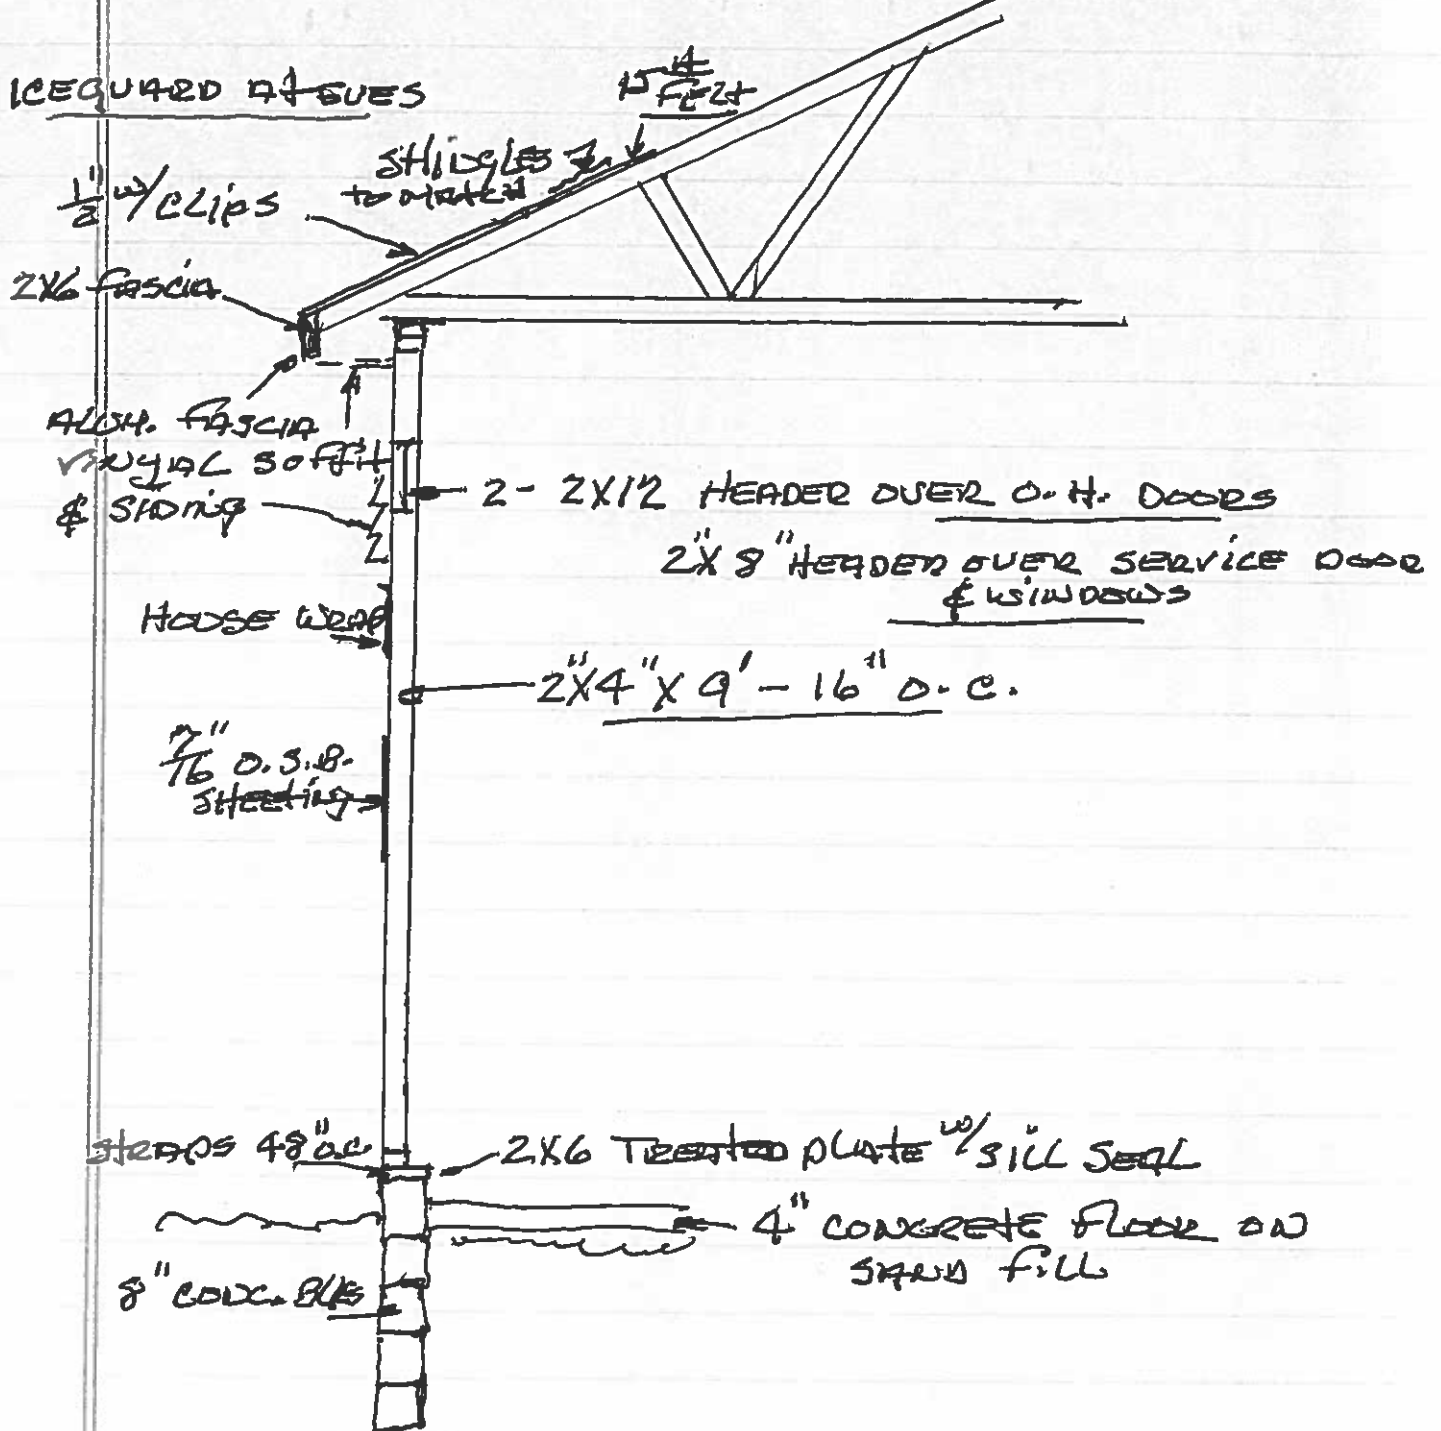 ICEGUARD At EUES
15# FELT
SHINGLES
to MATCH
1/2" w/CLIPS
2X6 FASCIA
ALUM. FASCIA
VINYAL SOFFIT
& SIDING
2- 2X12 HEADER OVER O.H. DOORS
2"X 8" HEADER OVER SERVICE DOOR
& WINDOWS
HOUSE WRAP
2"X4"X 9' - 16" O.C.
7/16" O.S.B.
SHEETING
STRAPS 48" O.C.
2X6 TREATED PLATE W/ SILL SEAL
4" CONCRETE FLOOR ON
SAND FILL
8" CONC. BLKS